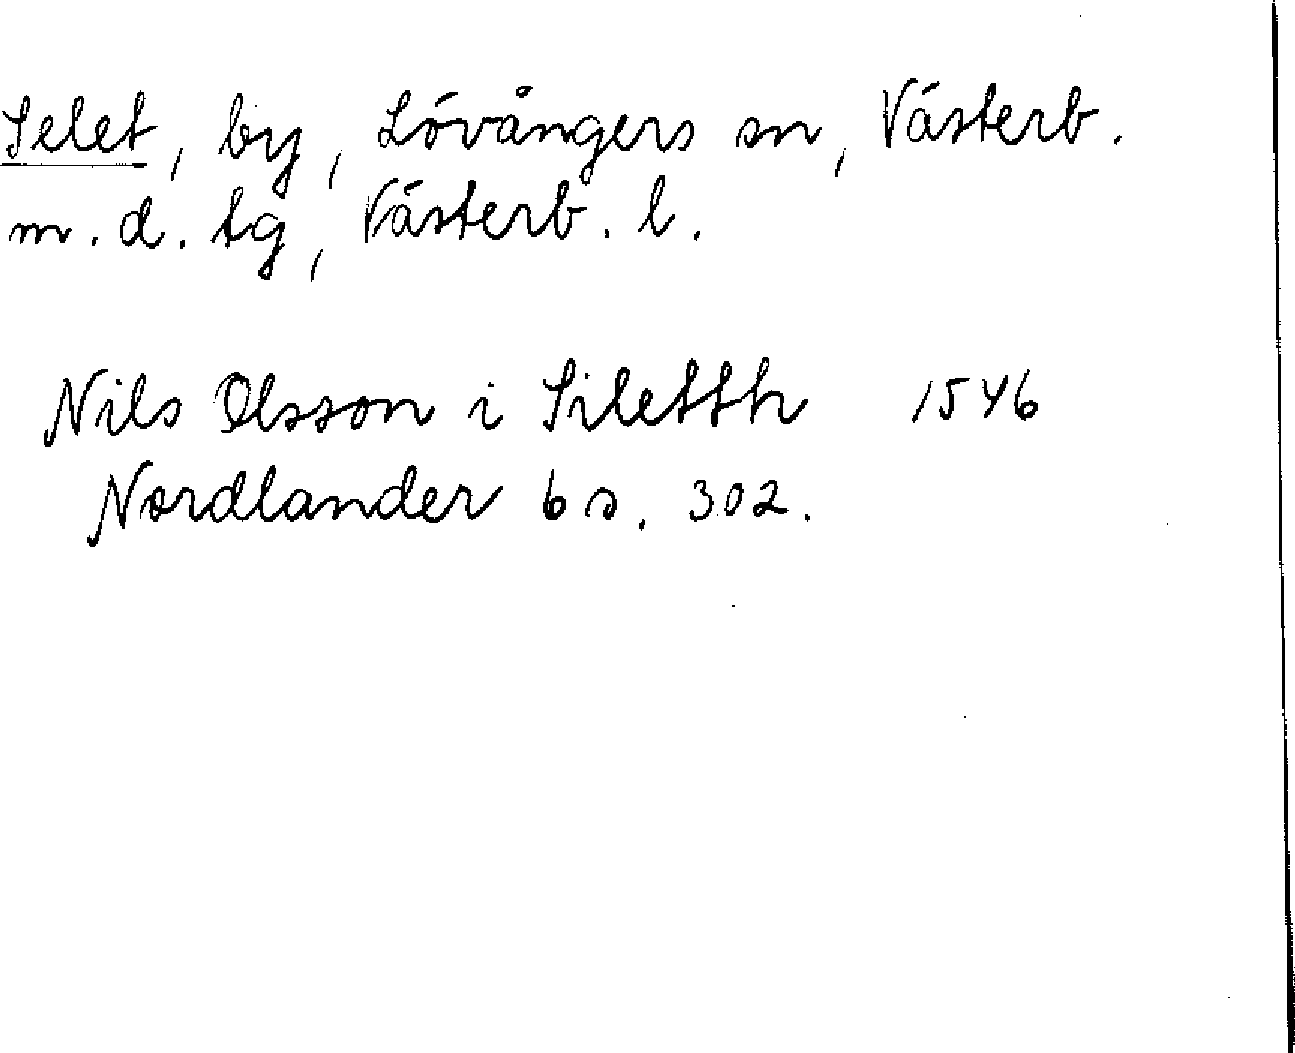 Selet, by, Lövångers sn, Västerb.
m. d. tg, Västerb. l.
Nils Olsson i Siletth 1546
Nordlander 6 s. 302.